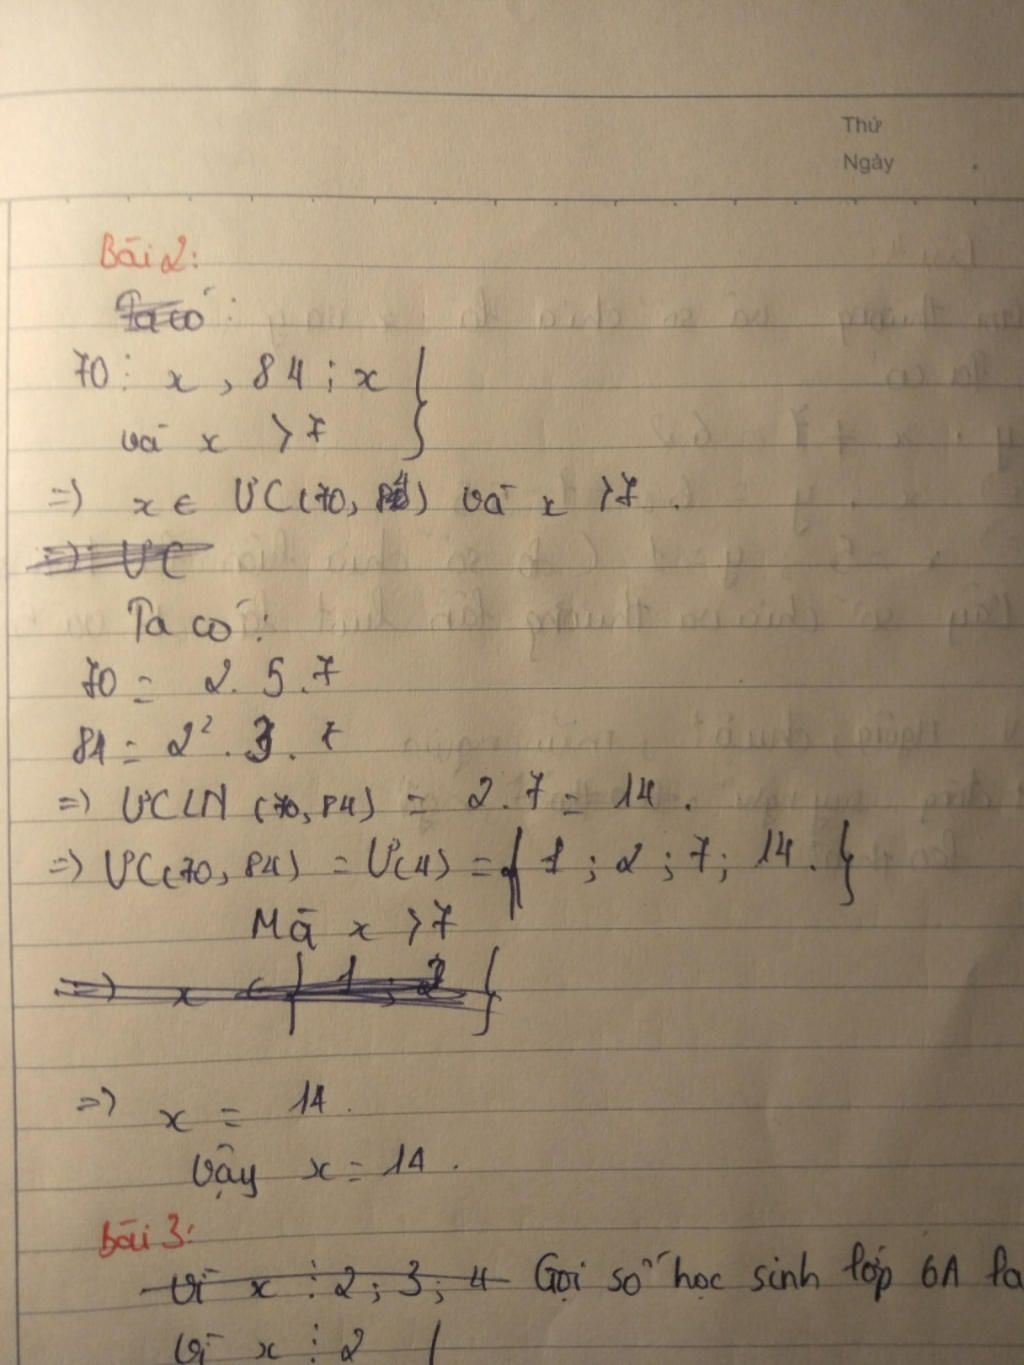 Thứ
Ngày
Bài 2:
Ta có :
70 ⋮ x , 84 ⋮ x }
và x > 7
=> x ∈ ƯC(70, 84) và x > 7 .
=> ƯC
Ta có :
70 = 2 . 5 . 7
84 = 2² . 3 . 7
=> ƯCLN (70, 84) = 2 . 7 = 14 .
=> ƯC(70, 84) = Ư(4) = { 1 ; 2 ; 7 ; 14 . }
Mà x > 7
=> x ∈ { 1 ; 2 }
=> x = 14 .
Vậy x = 14 .
Bài 3:
Vì x ⋮ 2 ; 3 ; 4 Gọi số học sinh lớp 6A là
Vì x ⋮ 2